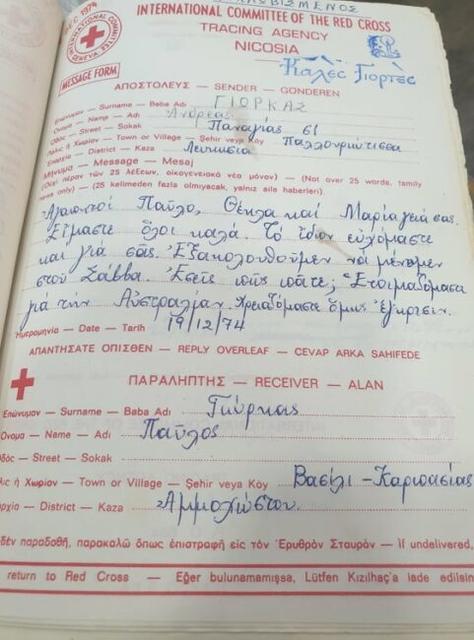 ΚΛΕΒΙΣΜΕΝΟΣ
INTERNATIONAL COMMITTEE OF THE RED CROSS
TRACING AGENCY
NICOSIA
DEC 1974
MESSAGE FORM
Καλές Γιορτές
ΑΠΟΣΤΟΛΕΥΣ — SENDER — GONDEREN
Επώνυμον — Surname — Baba Adı ΓΙΟΡΚΑΣ
Όνομα — Name — Adı Ανδρέας
Οδός — Street — Sokak Παναγίας 61
Πόλις ή Χωρίον — Town or Village — Şehir veya Köy Παλλουριώτισσα
Επαρχία — District — Kaza Λευκωσία
Μήνυμα — Message — Mesaj
(Οχι πέραν των 25 λέξεων, οικογενειακά νέα μόνον) — (Not over 25 words, family
news only) — (25 kelimeden fazla olmıyacak, yalnız aile haberleri)
Αγαπητοί Παύλο, Θέκλα και Μαρία γειά σας.
Είμαστε όλοι καλά. Το ίδιον ευχόμαστε
και γιά σας. Εξακολουθούμεν να μένομεν
στου Σάββα. Εσείς πώς πάτε; Ετοιμαζόμαστε
γιά την Αυστραλίαν χρειαζόμαστε όμως έγκρισιν.
Ημερομηνία — Date — Tarih 19/12/74
ΑΠΑΝΤΗΣΑΤΕ ΟΠΙΣΘΕΝ — REPLY OVERLEAF — CEVAP ARKA SAHIFEDE
ΠΑΡΑΛΗΠΤΗΣ — RECEIVER — ALAN
Επώνυμον — Surname — Baba Adı Γιώρκας
Όνομα — Name — Adı Παύλος
Οδός — Street — Sokak
Πόλις ή Χωρίον — Town or Village — Şehir veya Köy Βασίλι - Καρπασίας
Επαρχία — District — Kaza Αμμοχώστου.
δέν παραδοθή, παρακαλώ όπως επιστραφή είς τόν Έρυθρόν Σταυρόν — If undelivered,
return to Red Cross — Eğer bulunamamışsa, Lütfen Kızılhaç'a iade edilsin